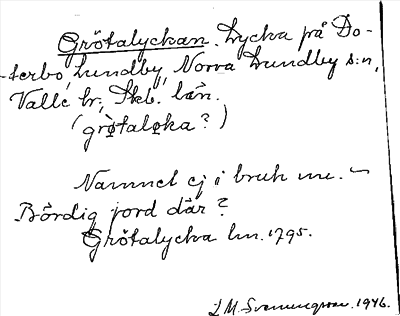 Grötalyckan. Lycka på Do-
terbo, Lundby, Norra Lundby s:n,
Valle hr, Skb. län.
(grø̀talọka?)
Namnet ej i bruk nu. –
Bördig jord där?
Grötalycka lm. 1795.
L M. Svenungsson. 1946.